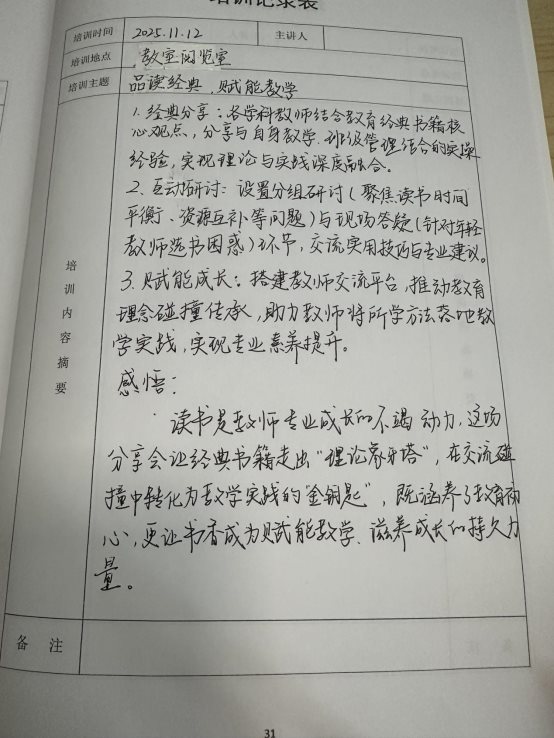 培训记录表
培训时间 2025.11.12 主讲人
培训地点 教室阅览室
培训主题 品读经典，赋能教学
培训内容摘要
1. 经典分享：各学科教师结合教育经典书籍核
心观点，分享与自身教学、班级管理结合的实操
经验，实现理论与实践深度融合。
2. 互动研讨：设置分组研讨（聚焦读书时间
平衡、资源互补等问题）与现场答疑（针对年轻
教师选书困惑）环节，交流实用技巧与专业建议。
3. 赋能成长：搭建教师交流平台，推动教育
理念碰撞传承，助力教师将所学方法落地教
学实战，实现专业素养提升。
感悟：
读书是教师专业成长的不竭动力，这场
分享会让经典书籍走出“理论象牙塔”，在交流碰
撞中转化为教学实战的“金钥匙”，既涵养了教育初
心，更让书香成为赋能教学、滋养成长的持久力
量。
备 注
31